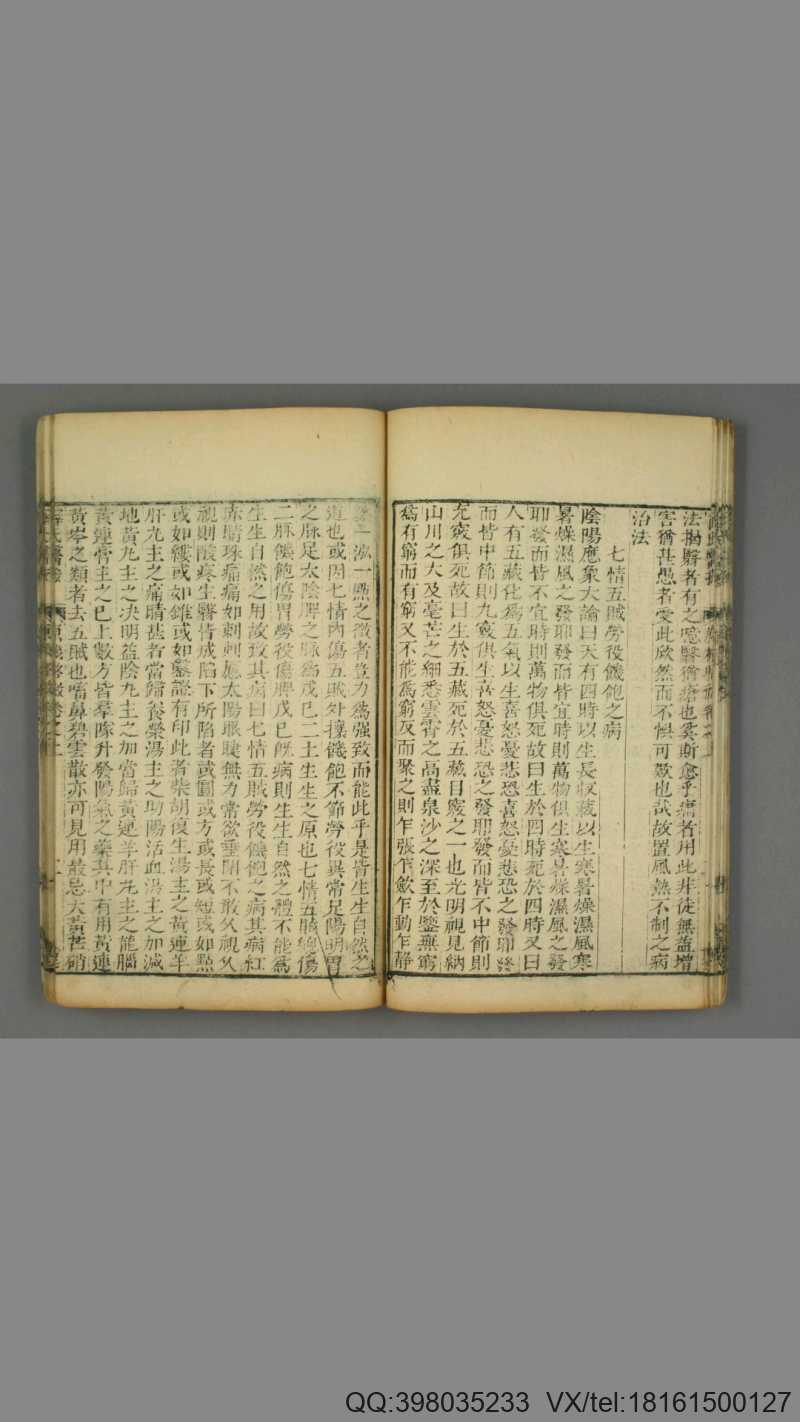 法搠醫者有之噫醫猶瘡也奚斯愈乎痛者用此非徒無益增
害猶甚愚者受此欣然而不惧可歎也哉故置風熱不制之病
治法
七情五賊勞役饑飽之病
陰陽應象大論曰天有四時以生長収藏以生寒暑燥濕風寒
暑燥濕風之發耶發而皆宜時則萬物俱生寒暑燥濕風之發
耶發而皆不宜時則萬物俱死故曰生於四時死於四時又曰
人有五藏化為五氣以生喜怒憂悲恐喜怒憂悲恐之發耶發
而皆中節則九竅俱生喜怒憂悲恐之發耶發而皆不中節則
九竅俱死故曰生於五藏死於五藏目竅之一也光明視見納
山川之大及毫芒之細悉雲霄之高盡泉沙之深至於鑒無窮
為有窮而有窮又不能為窮反而聚之則乍張乍歙乍動乍靜
為一泓一點之微者豈力為强致而能此乎是皆生生自然之
道也或因七情內傷五賊外攘饑飽不節勞役異常足陽明胃
之脉足太陰脾之脉為戊己二土生生之原也七情五賊總傷
二脉饑飽傷胃勞役傷脾戊己既病則生生自然之體不能為
生生自然之用故致其病曰七情五賊勞役饑飽之病其病紅
赤睛珠痛痛如刺刺應太陽眼睫無力常欲垂閉不敢久視久
視則酸疼生翳皆成陷下所陷者或圓或方或長或短或如點
或如縷或如錐或如鑿證有印此者柴胡復生湯主之黃連羊
肝丸主之痛睛甚者當歸養榮湯主之助陽活血湯主之加減
地黃丸主之决明益陰丸主之加當歸黃連羊肝丸主之龍腦
黃連膏主之已上數方皆羣隊升發陽氣之藥其中有用黃連
黃芩之類者去五賊也㗜鼻碧雲散亦可見用最忌大黃芒硝
QQ:398035233 VX/tel:18161500127